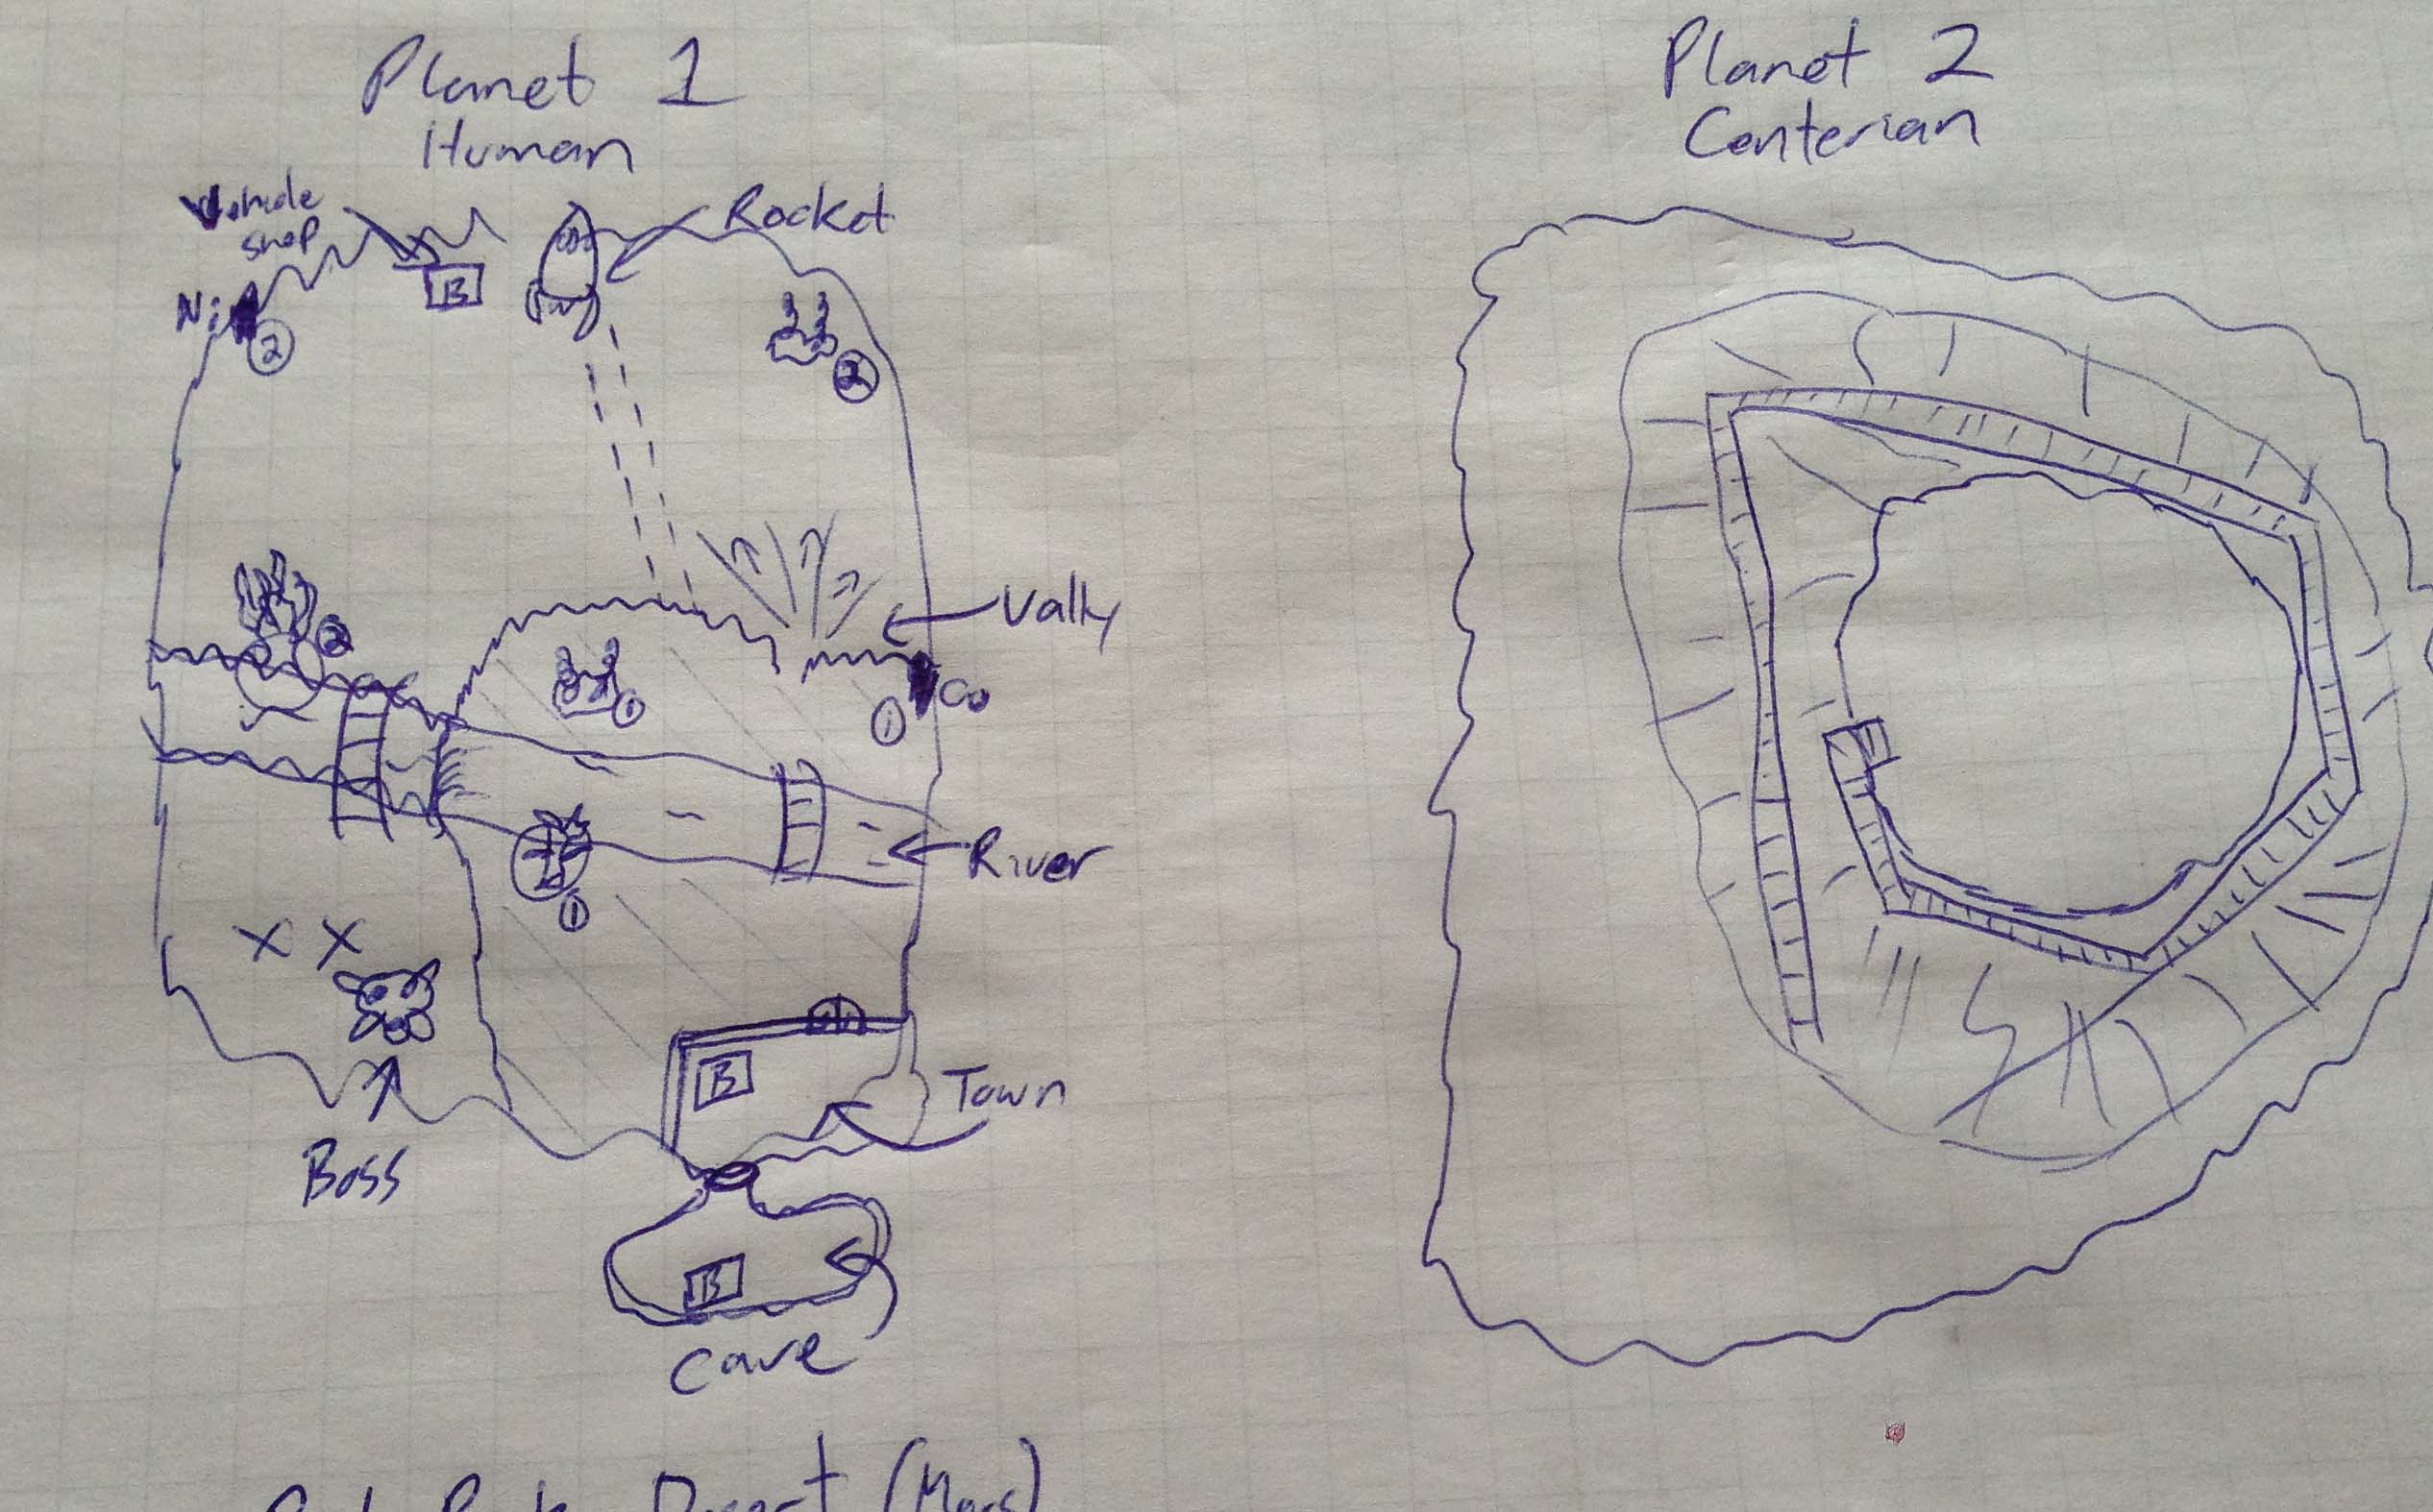 Planet 1
Human
Vehicle
shop
B
Rocket
Ni
2
2
2
Vally
1
Co
1
River
1
X X
B
Town
Boss
B
Cave
Desert (Mars)
Planet 2
Centerian